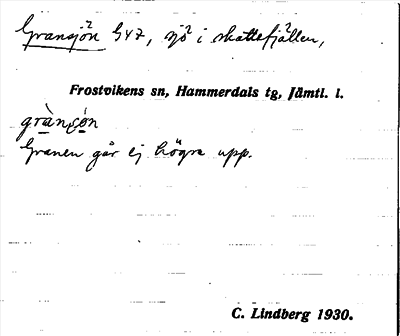 Gransjön 347, sjö i skattefjällen,
Frostvikens sn, Hammerdals tg, Jämtl. l.
grànʂö̀n
Granen går ej högre upp.
C. Lindberg 1930.